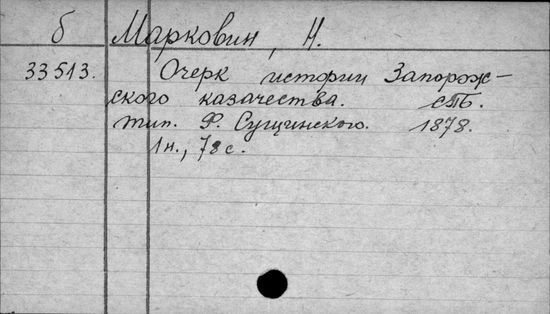 б Марковин, Н.
33513. Очерк истории Запорож-
ского казачества. СПб.
тип. Ф. Сущинского. 1878.
1н., 78 с.